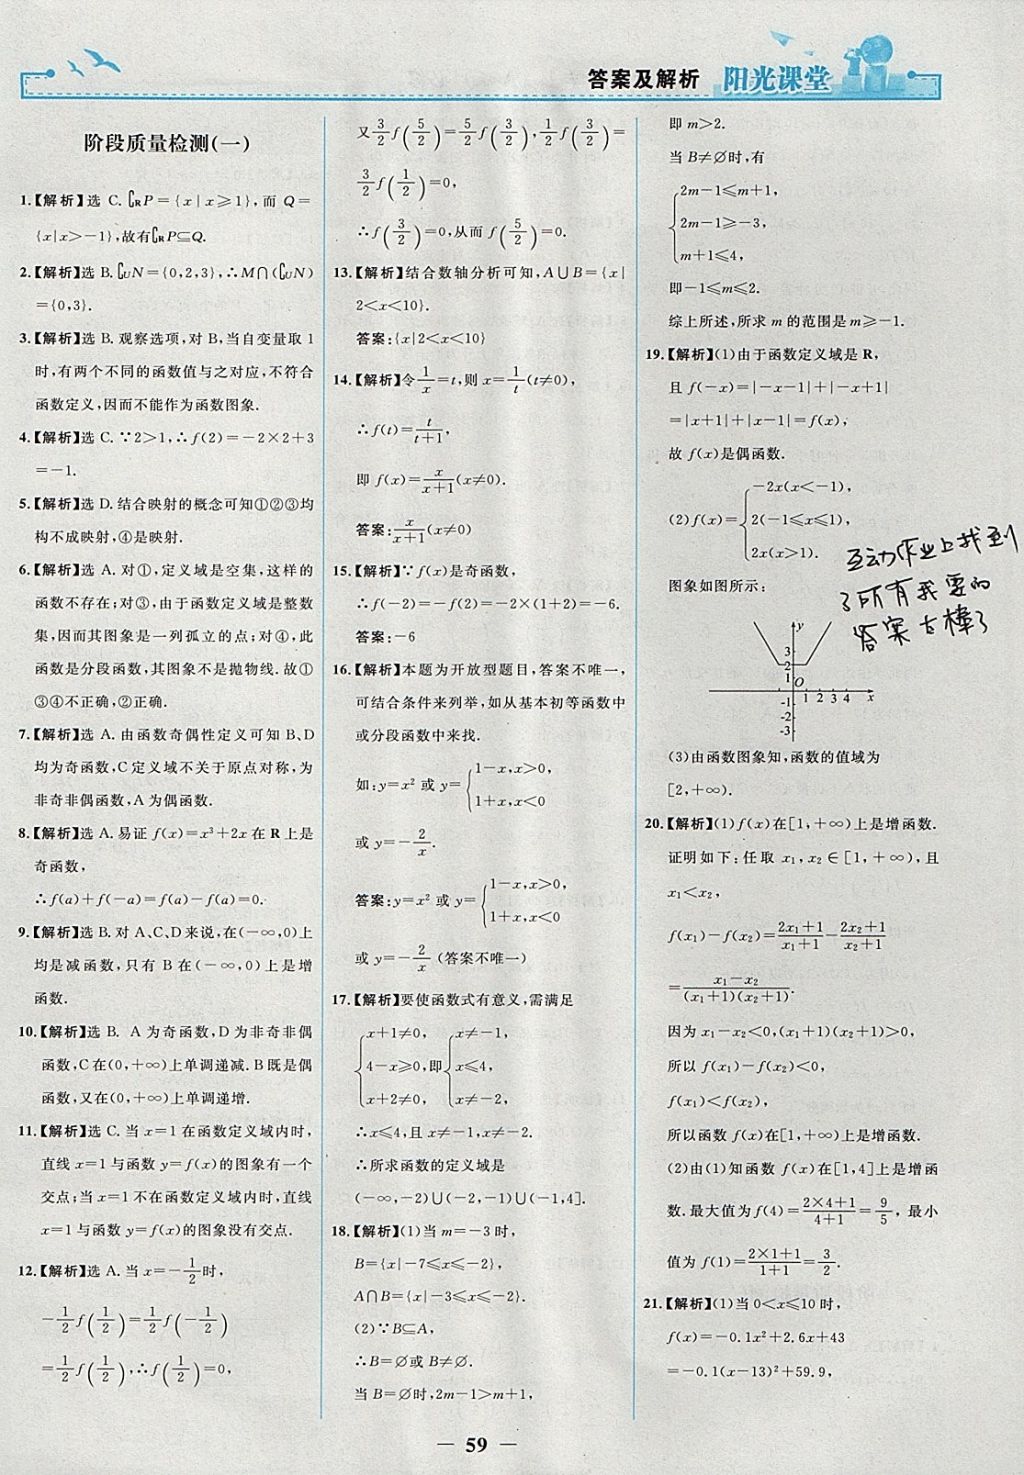 答案及解析 阳光课堂
阶段质量检测(一)
1.【解析】选 C. ∁RP={x|x≥1},而 Q=
{x|x>-1},故有∁RP⊆Q.
2.【解析】选 B. ∁UN={0,2,3},∴M∩(∁UN)
={0,3}.
3.【解析】选 B. 观察选项,对 B,当自变量取 1
时,有两个不同的函数值与之对应,不符合
函数定义,因而不能作为函数图象.
4.【解析】选 C. ∵2>1,∴f(2)=-2×2+3
=-1.
5.【解析】选 D. 结合映射的概念可知①②③均
构不成映射,④是映射.
6.【解析】选 A. 对①,定义域是空集,这样的
函数不存在;对③,由于函数定义域是整数
集,因而其图象是一列孤立的点;对④,此
函数是分段函数,其图象不是抛物线.故①
③④不正确,②正确.
7.【解析】选 A. 由函数奇偶性定义可知 B、D
均为奇函数,C 定义域不关于原点对称,为
非奇非偶函数,A 为偶函数.
8.【解析】选 A. 易证 f(x)=x³+2x 在 R 上是
奇函数,
∴f(a)+f(-a)=f(a)-f(a)=0.
9.【解析】选 B. 对 A、C、D 来说,在(-∞,0)上
均是减函数,只有 B 在(-∞,0)上是增
函数.
10.【解析】选 B. A 为奇函数,D 为非奇非偶
函数,C 在(0,+∞)上单调递减.B 既是偶
函数,又在(0,+∞)上单调递增.
11.【解析】选 C. 当 x=1 在函数定义域内时,
直线 x=1 与函数 y=f(x)的图象有一个
交点;当 x=1 不在函数定义域内时,直线
x=1 与函数 y=f(x)的图象没有交点.
12.【解析】选 A. 当 x=-1/2时,
-1/2 f(1/2)=1/2 f(-1/2)
=1/2 f(1/2),∴f(1/2)=0,
又3/2 f(5/2)=5/2 f(3/2),1/2 f(3/2)=
3/2 f(1/2)=0,
∴f(3/2)=0,从而 f(5/2)=0.
13.【解析】结合数轴分析可知,A∪B={x|
2<x<10}.
答案:{x|2<x<10}
14.【解析】令1/x=t,则 x=1/t(t≠0),
∴f(t)=t/(t+1),
即 f(x)=x/(x+1)(x≠0).
答案:x/(x+1)(x≠0)
15.【解析】∵f(x)是奇函数,
∴f(-2)=-f(2)=-2×(1+2)=-6.
答案:-6
16.【解析】本题为开放型题目,答案不唯一,
可结合条件来列举,如从基本初等函数中
或分段函数中来找.
如:y=x² 或 y={1-x,x>0,
1+x,x<0
或 y=-2/x.
答案:y=x² 或 y={1-x,x>0,
1+x,x<0
或 y=-2/x (答案不唯一)
17.【解析】要使函数式有意义,需满足
{x+1≠0, {x≠-1,
4-x≥0,即 x≤4,
x+2≠0, x≠-2.
∴x≤4,且 x≠-1,x≠-2.
∴所求函数的定义域是
(-∞,-2)∪(-2,-1)∪(-1,4].
18.【解析】(1)当 m=-3 时,
B={x|-7≤x≤-2},
A∩B={x|-3≤x≤-2}.
(2)∵B⊆A,
∴B=∅或 B≠∅.
当 B=∅时,2m-1>m+1,
即 m>2.
当 B≠∅时,有
{2m-1≤m+1,
2m-1≥-3,
m+1≤4,
即-1≤m≤2.
综上所述,所求 m 的范围是 m≥-1.
19.【解析】(1)由于函数定义域是 R,
且 f(-x)=|-x-1|+|-x+1|
=|x+1|+|x-1|=f(x),
故 f(x)是偶函数.
(2)f(x)={-2x(x<-1),
2(-1≤x≤1),
2x(x>1).
图象如图所示:
y
3
2
1
O
1 2 3 4 x
-1
-2
-3
(3)由函数图象知,函数的值域为
[2,+∞).
20.【解析】(1)f(x)在[1,+∞)上是增函数.
证明如下:任取 x₁,x₂∈[1,+∞),且
x₁<x₂,
f(x₁)-f(x₂)=(2x₁+1)/(x₁+1)-(2x₂+1)/(x₂+1)
=(x₁-x₂)/((x₁+1)(x₂+1)).
因为 x₁-x₂<0,(x₁+1)(x₂+1)>0,
所以 f(x₁)-f(x₂)<0,
f(x₁)<f(x₂),
所以函数 f(x)在[1,+∞)上是增函数.
(2)由(1)知函数 f(x)在[1,4]上是增函
数.最大值为 f(4)=(2×4+1)/(4+1)=9/5,最小
值为 f(1)=(2×1+1)/(1+1)=3/2.
21.【解析】(1)当 0<x≤10 时,
f(x)=-0.1x²+2.6x+43
=-0.1(x-13)²+59.9,
互动作业上找到
了所有我要的
答案 太棒了
— 59 —